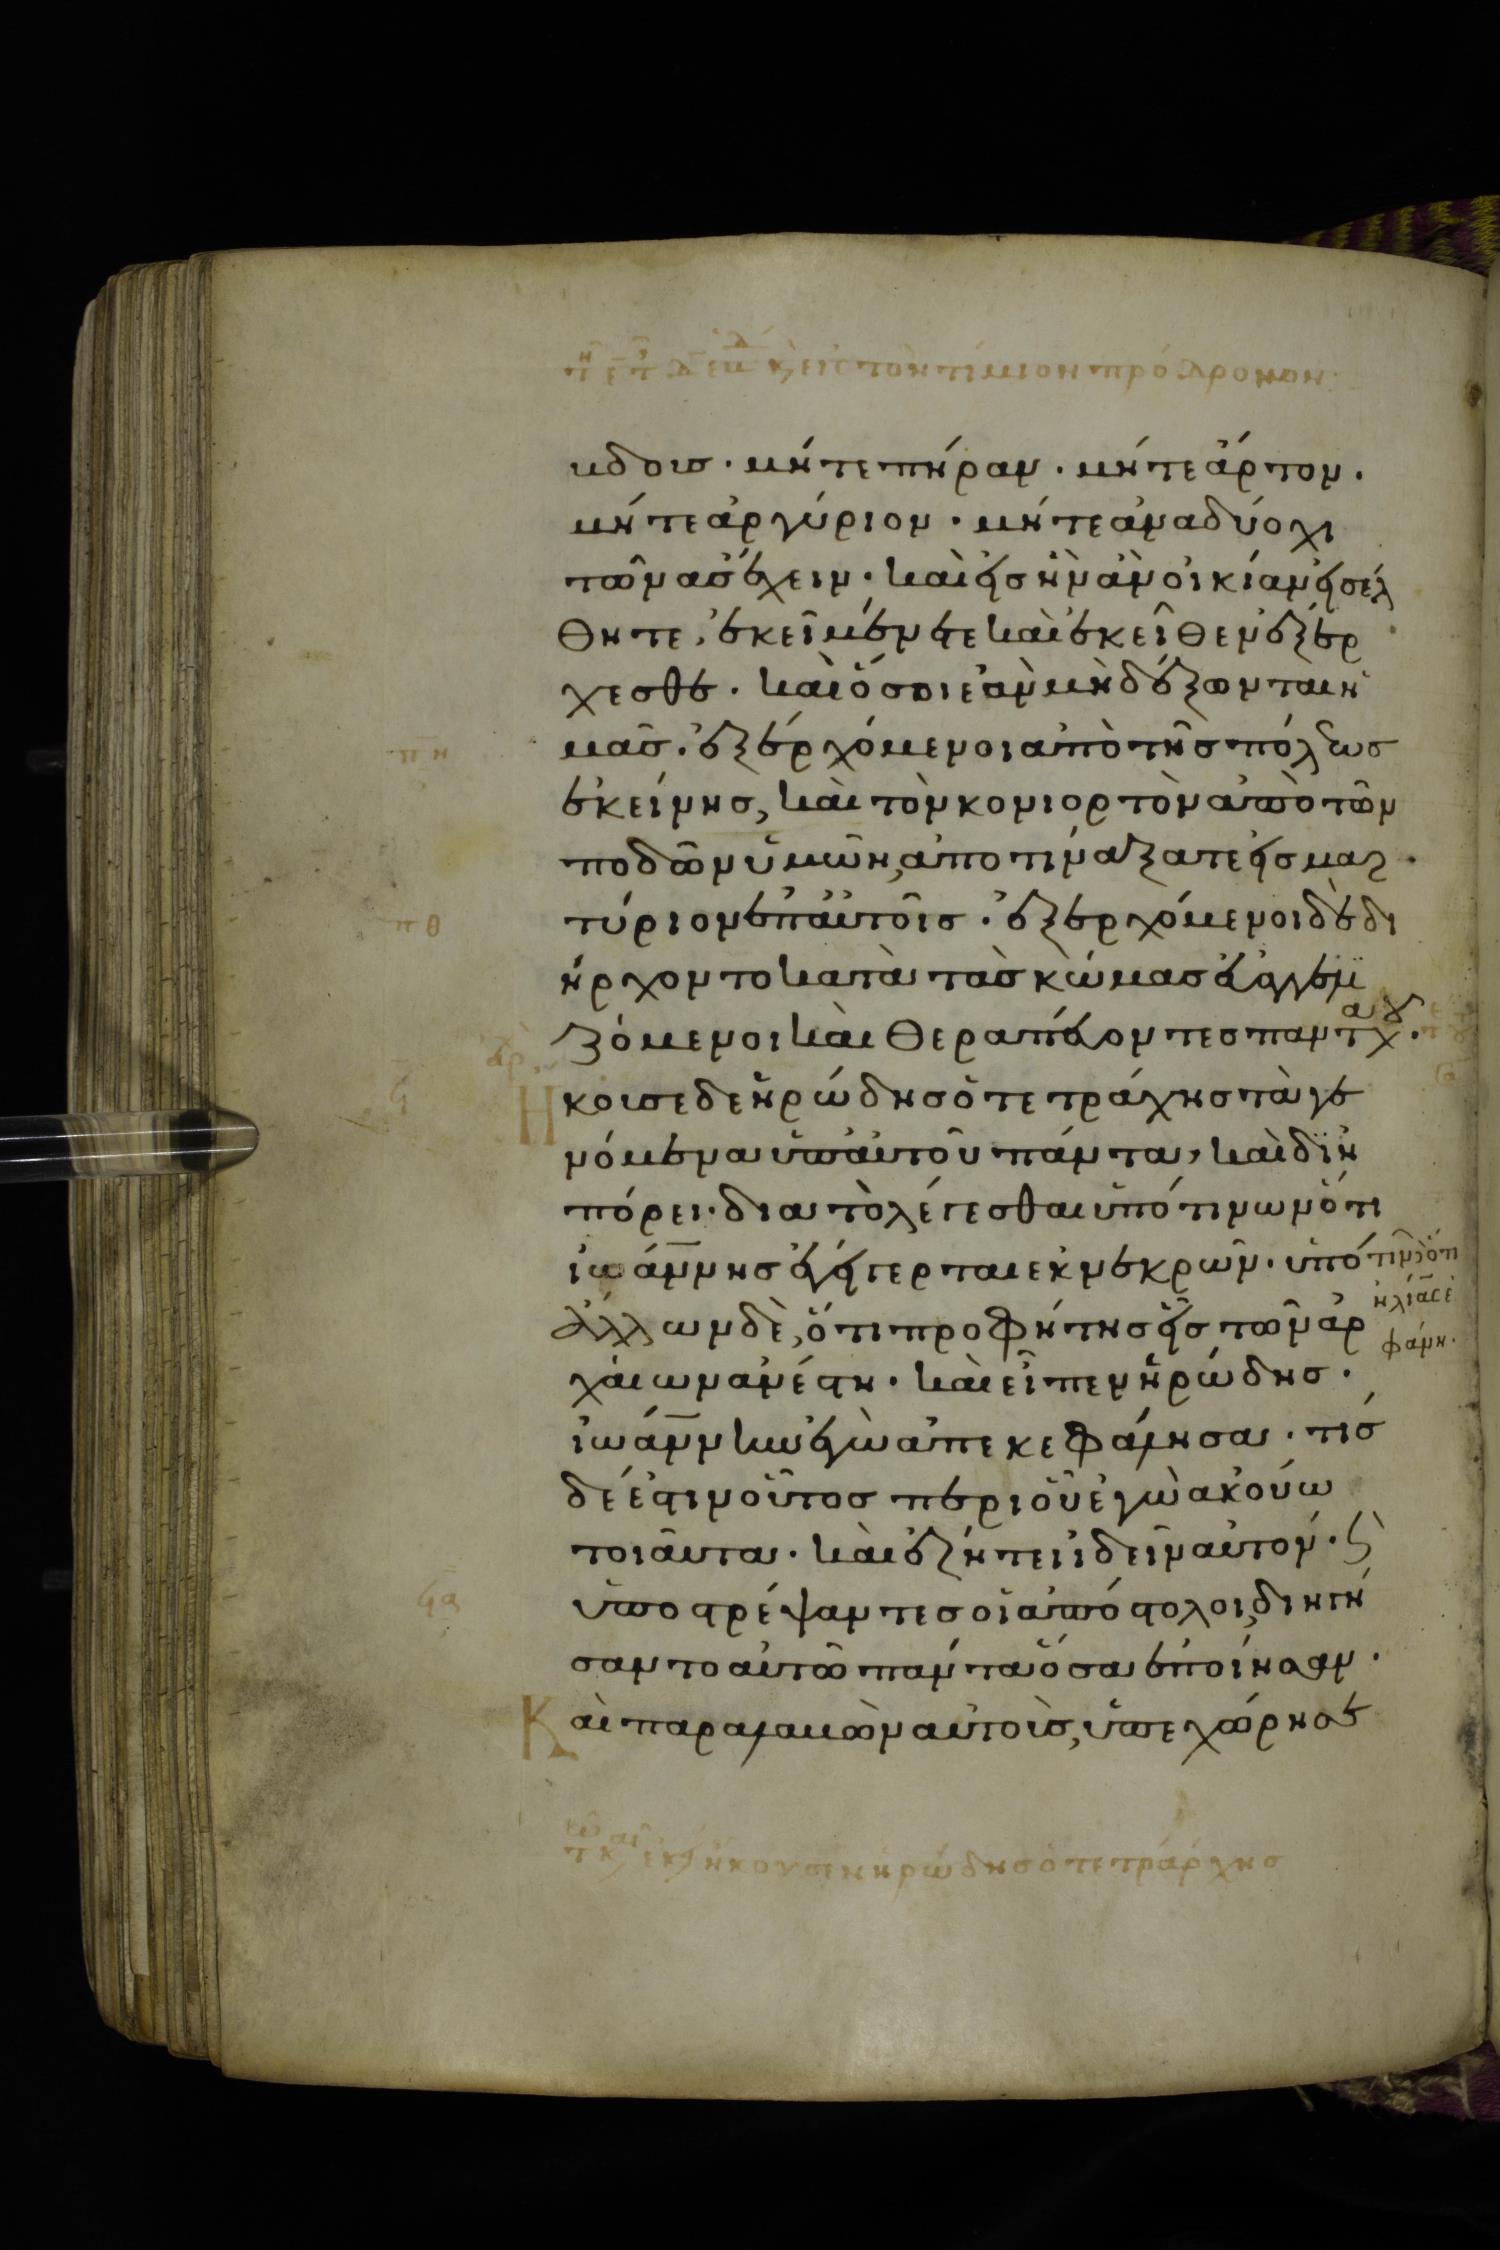 κ̀ εἰς τὸν τίμιον πρόδρομον
υδους · μήτε πήραν · μήτε ἄρτον ·
μήτε ἀργύριον · μήτε ἀνα δύο χι
τῶνας ἔχειν · καὶ εἰς ἣν ἂν οἰκίαν εἰσέλ
θητε, ἐκεῖ μένετε καὶ ἐκεῖθεν ἐξέρ
χεσθε · καὶ ὅσοι ἐὰν μὴ δέξωνται ὑ
μᾶς · ἐξερχόμενοι ἀπὸ τῆς πόλεως
ἐκείνης, καὶ τὸν κονιορτὸν ἀπὸ τῶν
ποδῶν ὑμῶν, ἀποτινάξατε εἰς μαρ
τύριον ἐπ αὐτοῖς · ἐξερχόμενοι δὲ δι
ήρχοντο κατὰ τὰς κώμας εὐαγγελι
ζόμενοι καὶ θεραπεύοντες πανταχοῦ ·
Ηκουσε δε ἡρώδης ὁ τετράχης τὰ γε
νόμενα ὑπ αὐτοῦ πάντα, καὶ διη
πόρει · δια τὸ λέγεσθαι ὑπό τινων ὅτι
ἰωάννης ἐγήγερται ἐκ νεκρῶν · ὑπό τινων ὅτι
ἠλίας ἐ
φάνη ·
ἄλλων δὲ, ὅτι προφήτης εἷς τῶν ἀρ
χαίων ἀνέστη · καὶ εἶπεν ἡρώδης ·
ἰωάννην ἐγὼ ἀπεκεφάλησα · τίς
δέ ἐστιν οὗτος περὶ οὗ ἐγὼ ἀκούω
τοιαῦτα · καὶ ἐζήτει ἰδεῖν αὐτόν · ϛ̀
ὑποστρέψαντες οἱ ἀπόστολοι, διηγή
σαντο αὐτῶ πάντα ὅσα ἐποίησαν ·
Καὶ παραλαβὼν αὐτοὺς, ὑπεχώρησε
πη
πθ
ϟ
ϟα
ἤκουσεν ἡρώδης ὁ τετράρχης